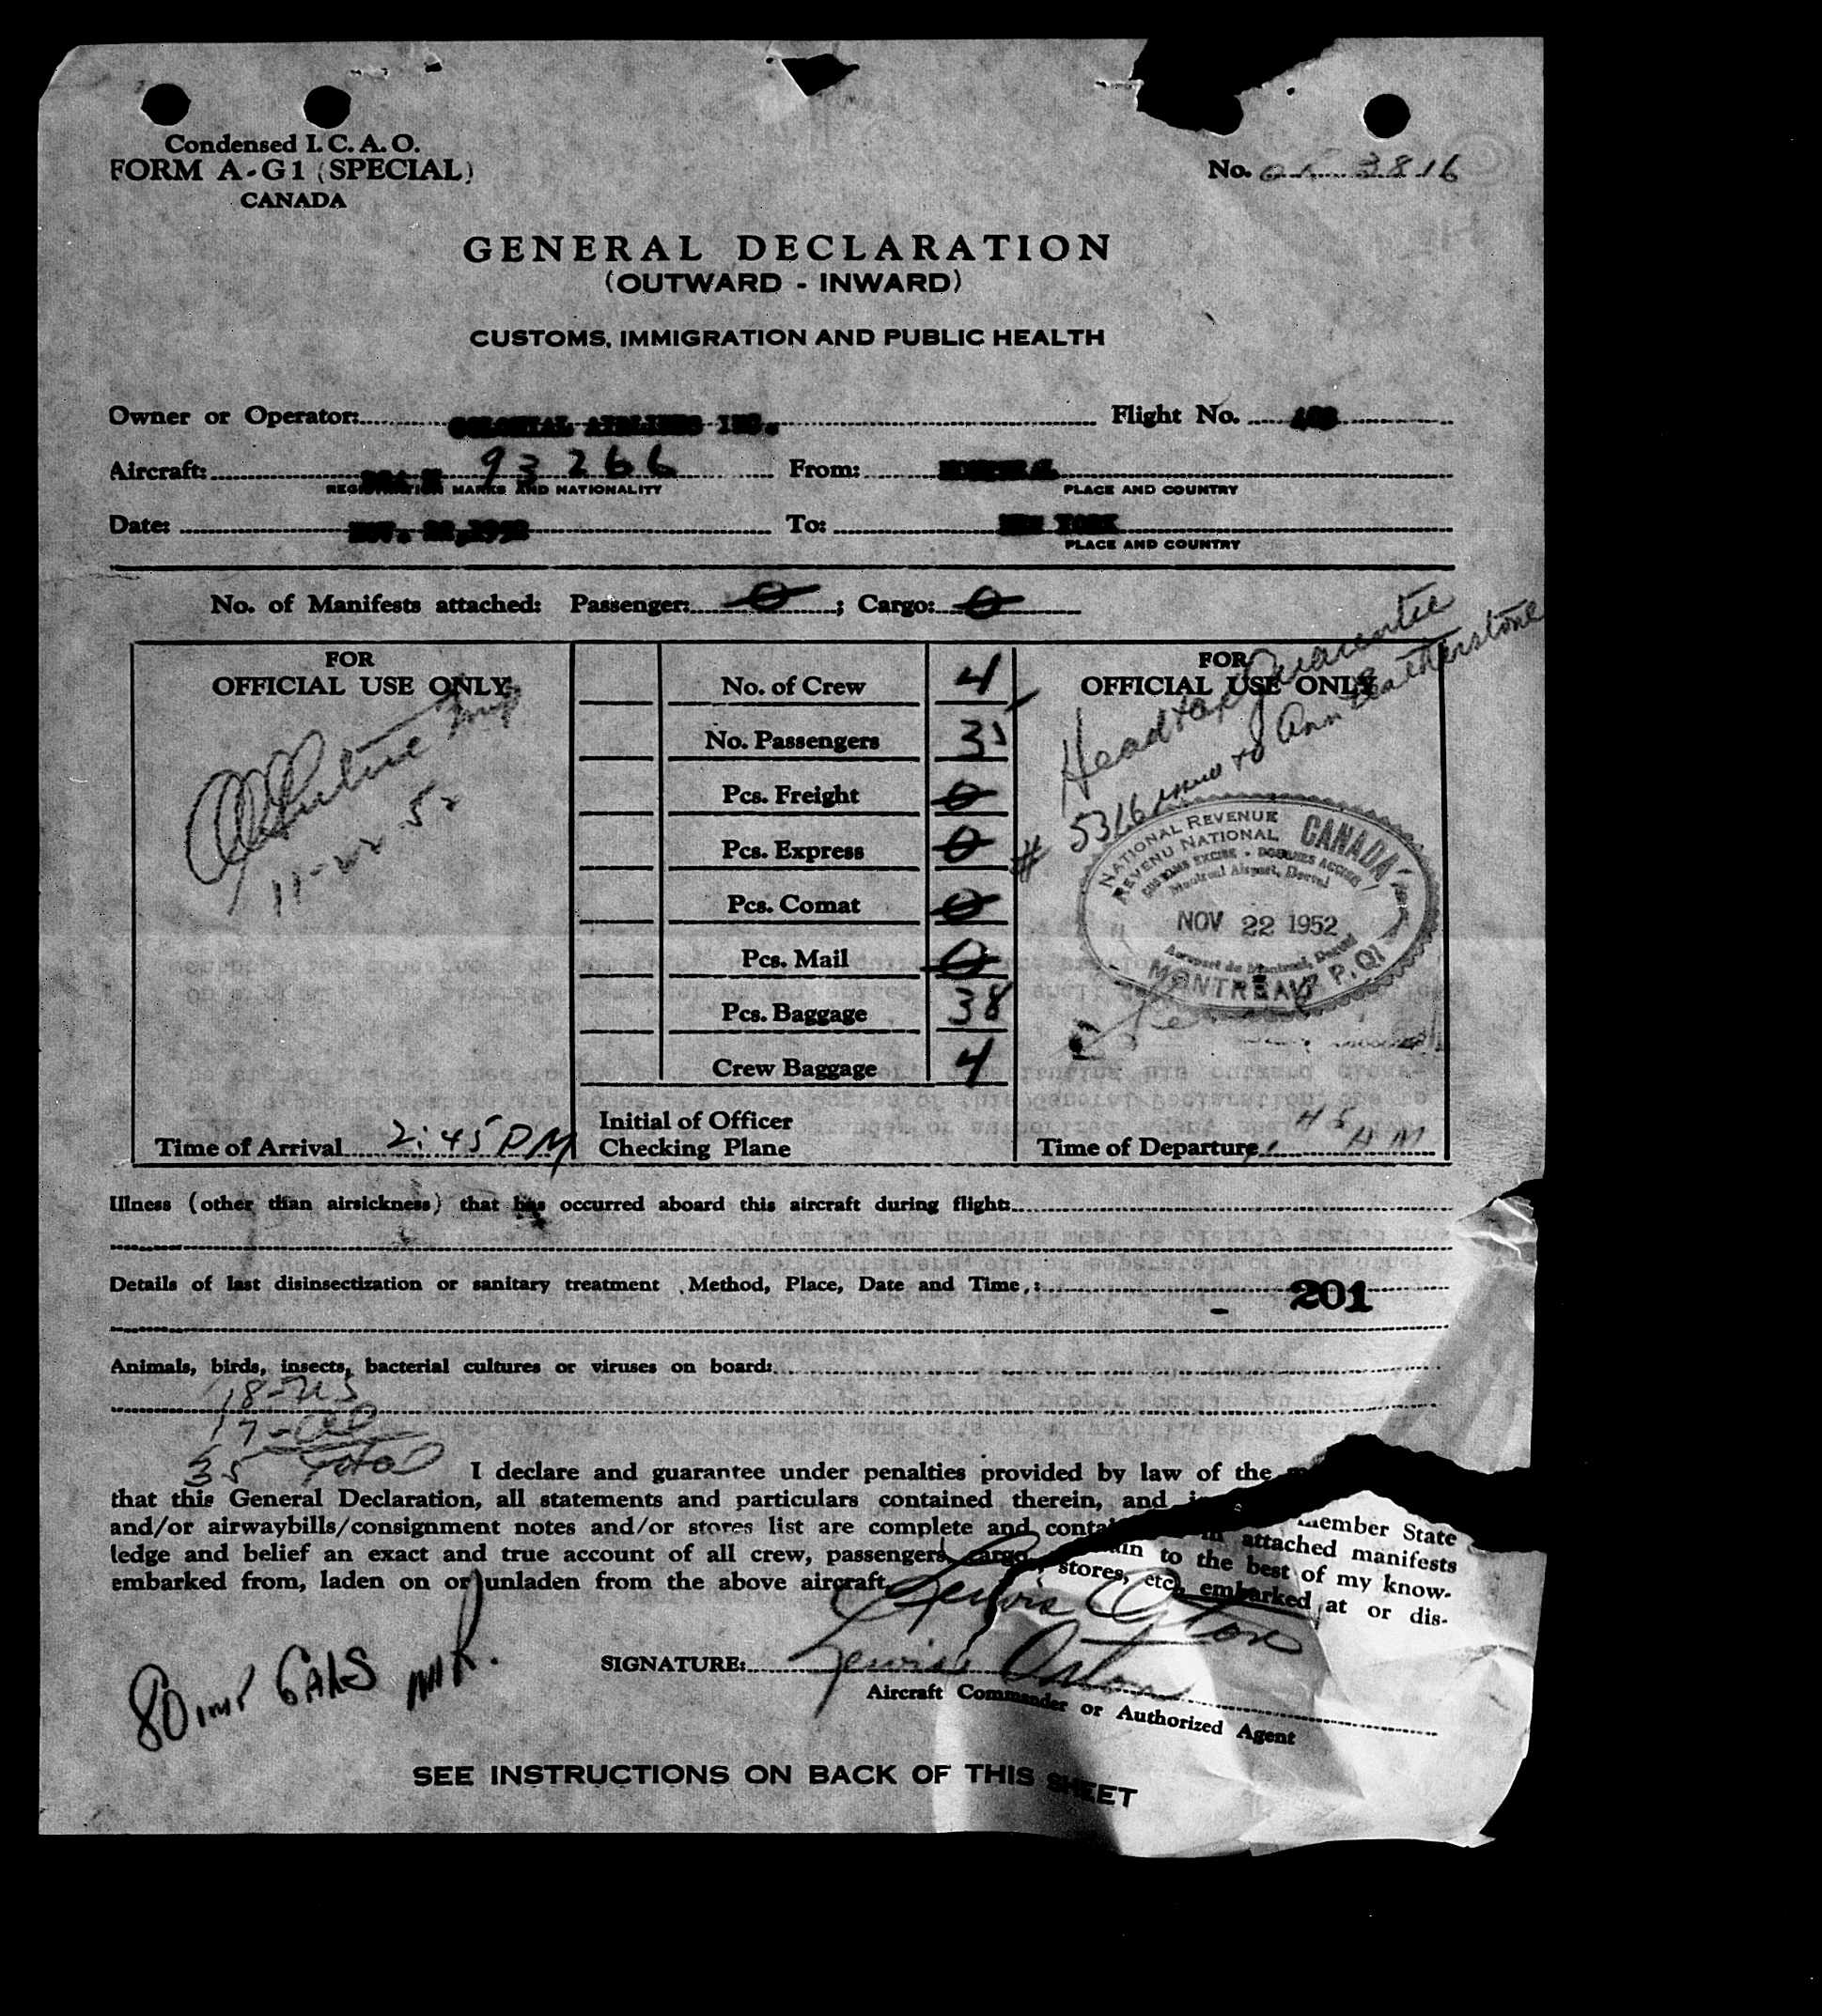 Condensed I. C. A. O.
FORM A-G1 (SPECIAL)
CANADA
No. 3816
GENERAL DECLARATION
(OUTWARD - INWARD)
CUSTOMS, IMMIGRATION AND PUBLIC HEALTH
Owner or Operator: COLONIAL AIRLINES INC. Flight No.
Aircraft: 93266 From:
REGISTRATION MARKS AND NATIONALITY PLACE AND COUNTRY
Date: NOV. 22,1952 To: NEW YORK
PLACE AND COUNTRY
No. of Manifests attached: Passenger: 0 ; Cargo: 0
FOR
OFFICIAL USE ONLY
11-22-52
Time of Arrival 2:45 PM
No. of Crew 4
No. Passengers 35
Pcs. Freight 0
Pcs. Express 0
Pcs. Comat 0
Pcs. Mail 0
Pcs. Baggage 38
Crew Baggage 4
Initial of Officer
Checking Plane
FOR
OFFICIAL USE ONLY
Headtax Guarantee
# 5316 issued to Ann Featherstone
NATIONAL REVENUE
REVENU NATIONAL
CANADA
CUSTOMS EXCISE - DOUANES ACCISE
Montreal Airport, Dorval
NOV 22 1952
Aeroport de Montreal, Dorval
MONTREAL P.Q.
Time of Departure 45 AM
Illness (other than airsickness) that has occurred aboard this aircraft during flight:
Details of last disinsectization or sanitary treatment Method, Place, Date and Time :
- 201
Animals, birds, insects, bacterial cultures or viruses on board:
18-US
17-
35 Total
I declare and guarantee under penalties provided by law of the member State
that this General Declaration, all statements and particulars contained therein, and in attached manifests
and/or airwaybills/consignment notes and/or stores list are complete and contain to the best of my know-
ledge and belief an exact and true account of all crew, passengers, cargo, stores, etc. embarked at or dis-
embarked from, laden on or unladen from the above aircraft.
Lewis Oston
SIGNATURE: Lewis Oston
Aircraft Commander or Authorized Agent
80 IMP GALS
SEE INSTRUCTIONS ON BACK OF THIS SHEET